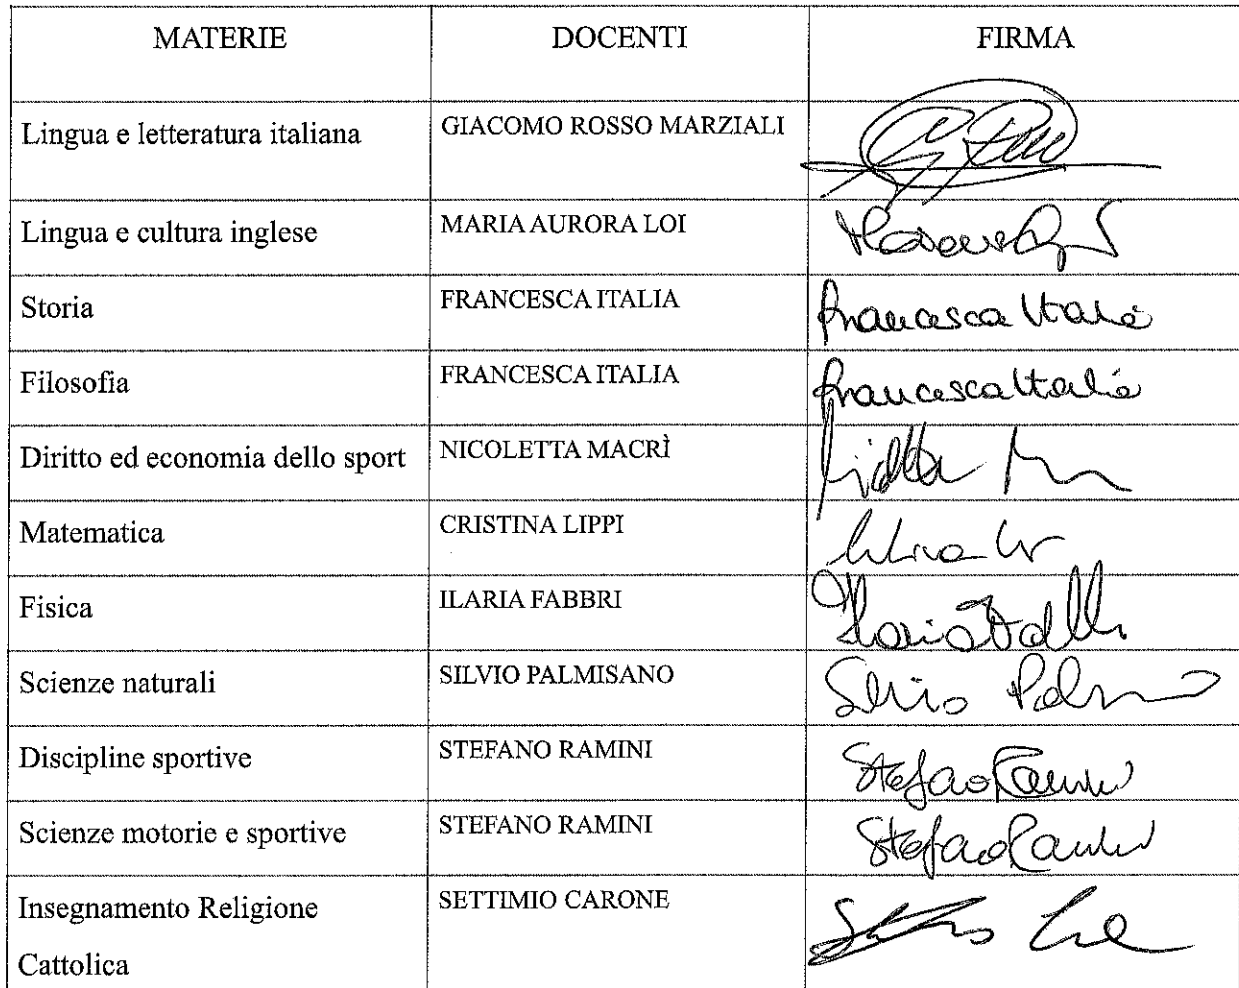 MATERIE DOCENTI FIRMA
Lingua e letteratura italiana GIACOMO ROSSO MARZIALI
Lingua e cultura inglese MARIA AURORA LOI
Storia FRANCESCA ITALIA Francesca Italia
Filosofia FRANCESCA ITALIA Francesca Italia
Diritto ed economia dello sport NICOLETTA MACRÌ
Matematica CRISTINA LIPPI
Fisica ILARIA FABBRI Ilaria
Scienze naturali SILVIO PALMISANO Silvio
Discipline sportive STEFANO RAMINI Stefano Ramini
Scienze motorie e sportive STEFANO RAMINI Stefano Ramini
Insegnamento Religione SETTIMIO CARONE
Cattolica